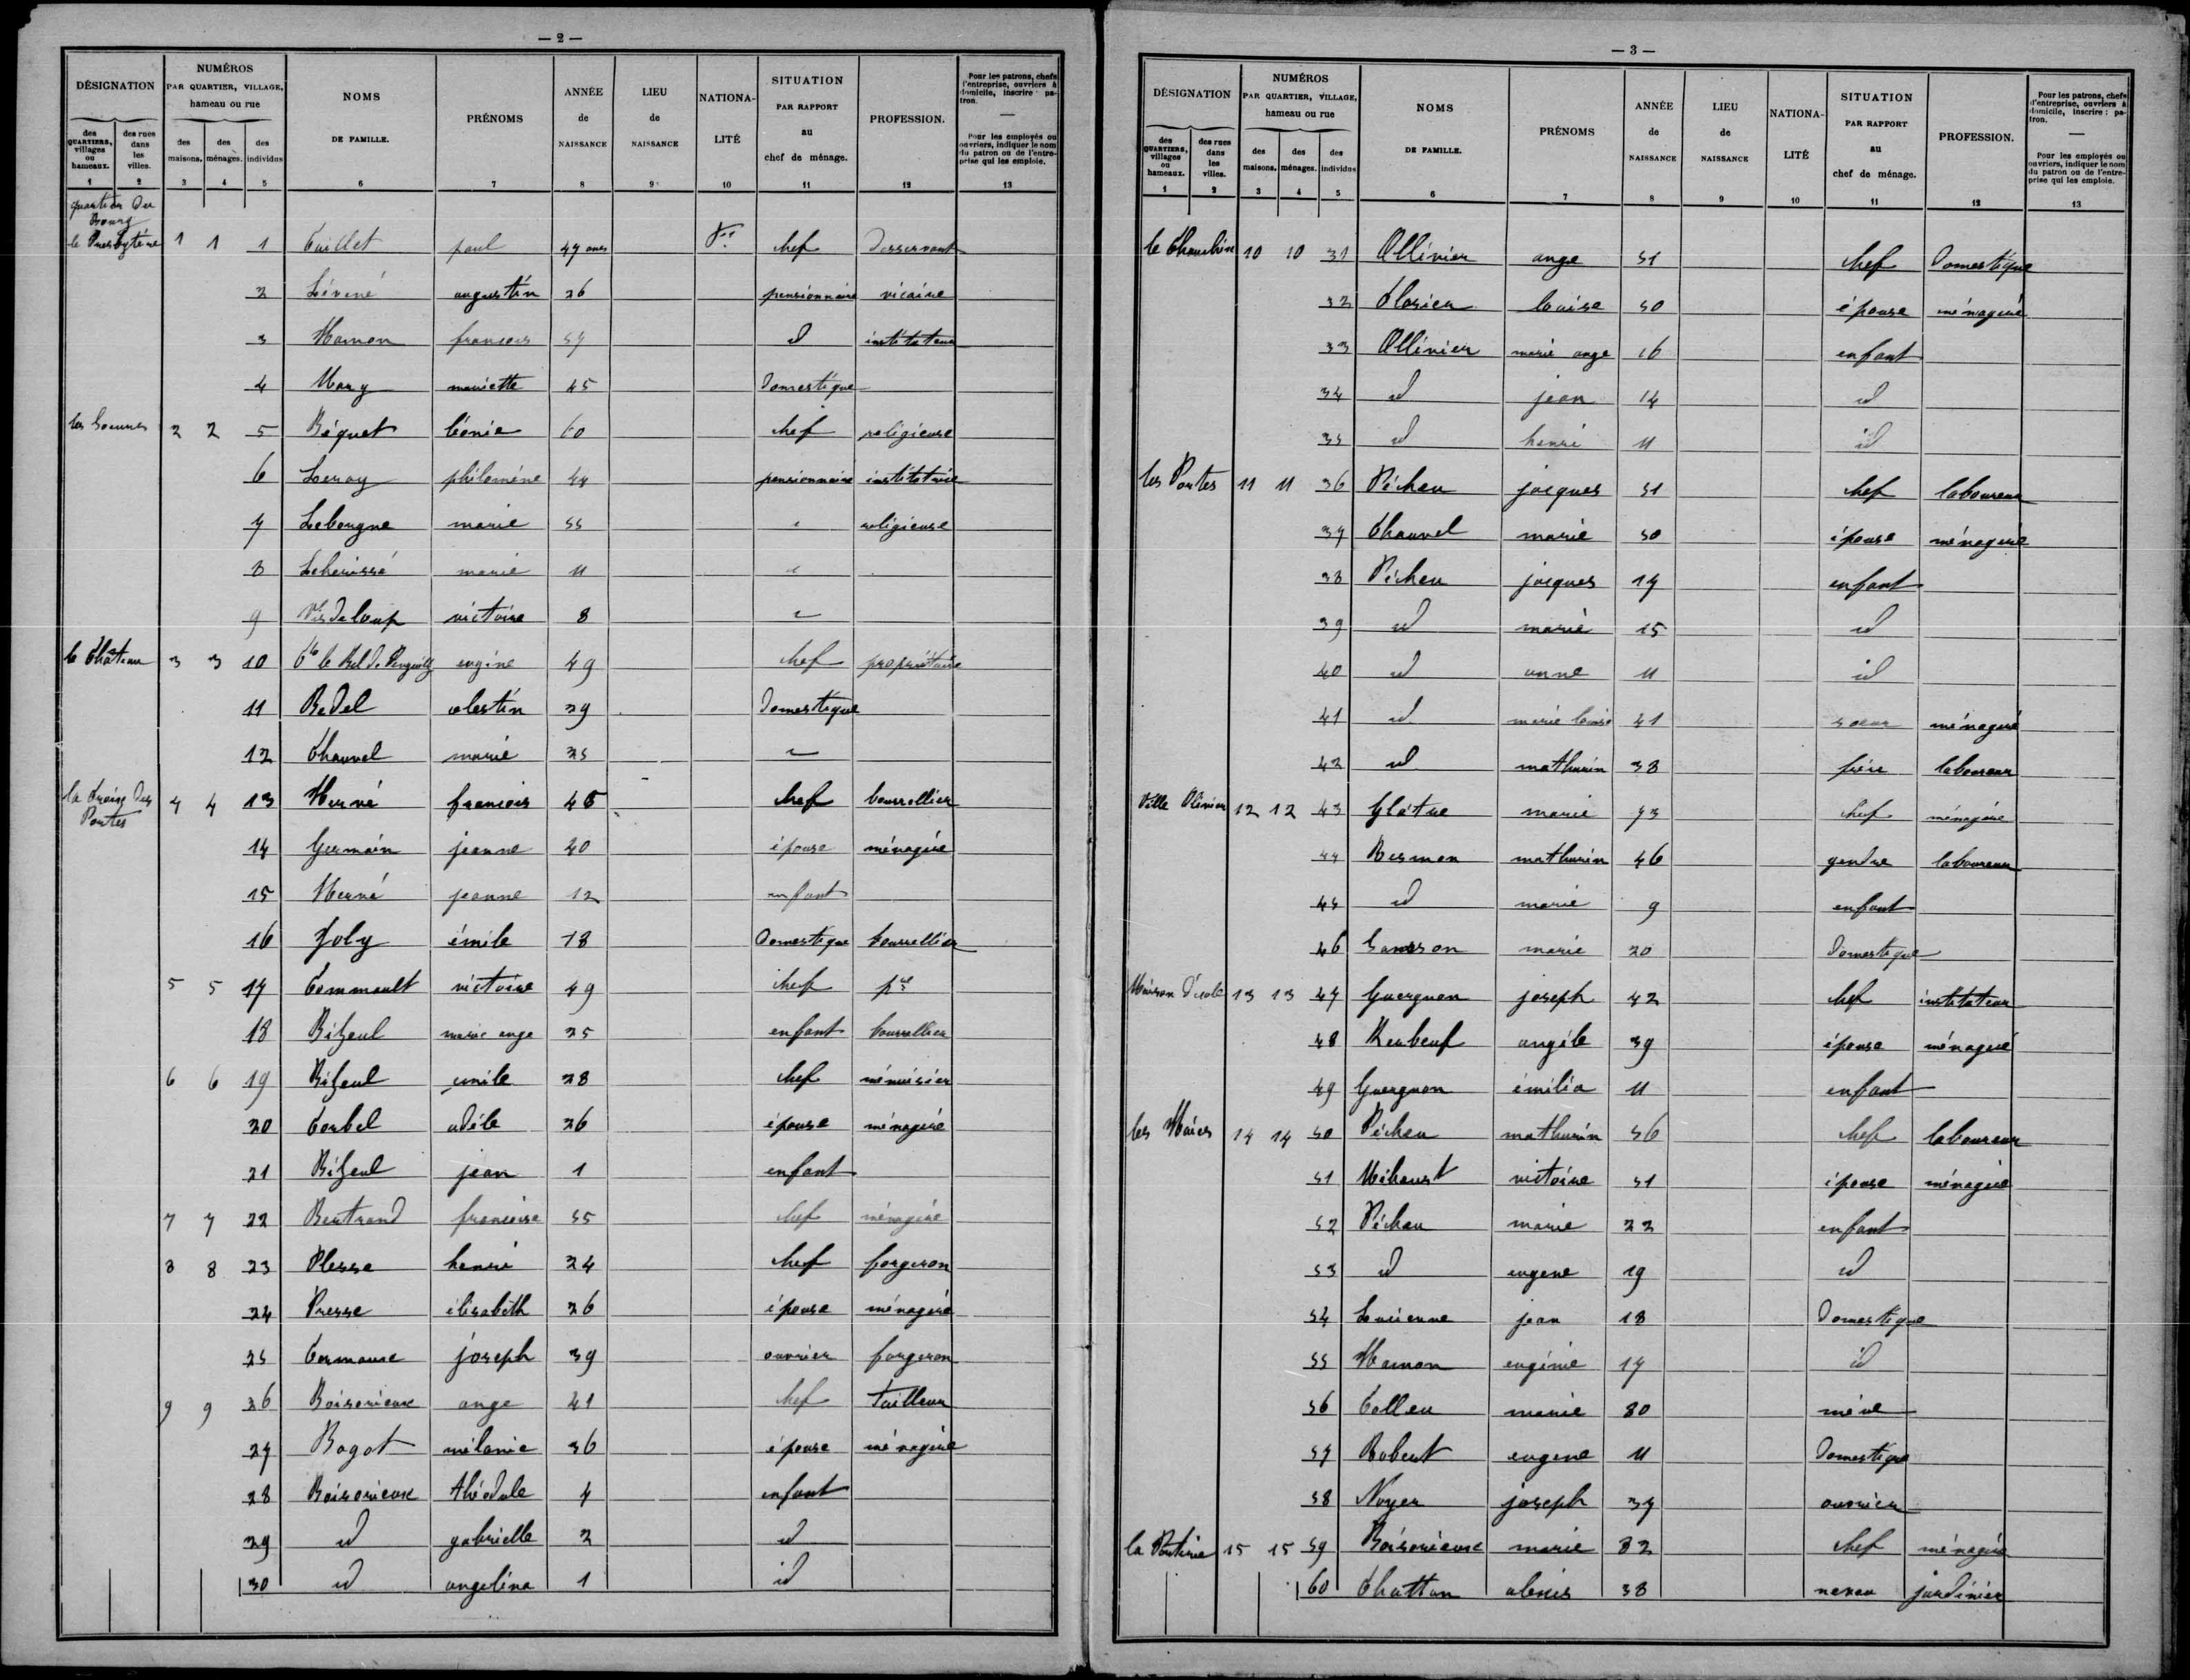 — 2 —
DÉSIGNATION
NUMÉROS
PAR QUARTIER, VILLAGE,
hameau ou rue
NOMS
DE FAMILLE.
PRÉNOMS
ANNÉE
de
NAISSANCE
LIEU
de
NAISSANCE
NATIONA-
LITÉ
SITUATION
PAR RAPPORT
au
chef de ménage.
PROFESSION.
Pour les patrons, chefs
d'entreprise, ouvriers à
domicile, inscrire : pa-
tron.
—
Pour les employés ou
ouvriers, indiquer le nom
du patron ou de l'entre-
prise qui les emploie.
des
QUARTIERS,
villages
ou
hameaux.
des rues
dans
les
villes.
des
maisons.
des
ménages.
des
individus
1 2 3 4 5 6 7 8 9 10 11 12 13
quartier du
Bourg
le Presbytère 1 1 1 paul 47 ans chef desservant
2 Lévené augustin 26 pensionnaire vicaire
3 Hamon francois 57 id instituteur
4 Mary mariette 45 domestique
les Soeurs 2 2 5 Béquet léonie 60 chef religieuse
6 Leroy philomène 44 pensionnaire institutrice
7 Leborgne marie 55 " religieuse
8 Leherissé marie 11 "
9 Visdeloup victoire 8 "
le Château 3 3 10 Cte le Bel de Penguilly eugène 49 chef propriétaire
11 Bedel celestin 29 domestique
12 Chauvel marie 25 "
la Croix des
Portes 4 4 13 Hervé francois 45 chef bourrellier
14 Germain jeanne 40 épouse ménagère
15 Hervé jeanne 12 enfant
16 Joly émile 18 domestique bourrellier
5 5 17 Commault victoire 49 chef
18 Bizeul marie ange 25 enfant bourrellier
6 6 19 Bizeul emile 28 chef menuisier
20 Corbel adèle 26 épouse ménagère
21 Bizeul jean 1 enfant
7 7 22 Bertrand francoise 55 chef ménagère
8 8 23 Plesse henri 24 chef forgeron
24 Presse élisabeth 26 épouse ménagère
25 joseph 39 ouvrier forgeron
9 9 26 Boisorieux ange 41 chef tailleur
27 Bagot mélanie 36 épouse ménagère
28 Boisorieux théodule 4 enfant
29 id gabrielle 2 id
30 id angelina 1 id
— 3 —
DÉSIGNATION
NUMÉROS
PAR QUARTIER, VILLAGE,
hameau ou rue
NOMS
DE FAMILLE.
PRÉNOMS
ANNÉE
de
NAISSANCE
LIEU
de
NAISSANCE
NATIONA-
LITÉ
SITUATION
PAR RAPPORT
au
chef de ménage.
PROFESSION.
Pour les patrons, chefs
d'entreprise, ouvriers à
domicile, inscrire : pa-
tron.
—
Pour les employés ou
ouvriers, indiquer le nom
du patron ou de l'entre-
prise qui les emploie.
des
QUARTIERS,
villages
ou
hameaux.
des rues
dans
les
villes.
des
maisons.
des
ménages.
des
individus
1 2 3 4 5 6 7 8 9 10 11 12 13
10 10 31 Ollivier ange 51 chef domestique
32 louise 50 épouse ménagère
33 Ollivier marie ange 16 enfant
34 id jean 14 id
35 id henri 11 id
les Portes 11 11 36 Pécheu jacques 51 chef laboureur
37 Chauvel marie 50 épouse ménagère
38 Pécheu jacques 17 enfant
39 id marie 15 id
40 id anne 11 id
41 id marie louise 41 soeur ménagère
42 id mathurin 38 frère laboureur
Ville Olivier 12 12 43 Glâtre marie 73 chef ménagère
44 Besmen mathurin 46 gendre laboureur
45 id marie 9 enfant
46 Samson marie 20 domestique
Maison d'école 13 13 47 Guergnon joseph 42 chef instituteur
48 Reubeuf angèle 39 épouse ménagère
49 Guergnon émilia 11 enfant
les Noires 14 14 50 Pécheu mathurin 56 chef laboureur
51 Méhaust victoire 51 épouse ménagère
52 Pécheu marie 22 enfant
53 id eugene 19 id
54 Lucienne jean 18 domestique
55 Hamon eugénie 17 id
56 Colleu marie 80 mère
57 Robert eugene 11 domestique
58 Noyer joseph 37 ouvrier
15 15 59 Boisorieux marie 82 chef ménagère
60 Chatton alexis 38 neveu jardinier